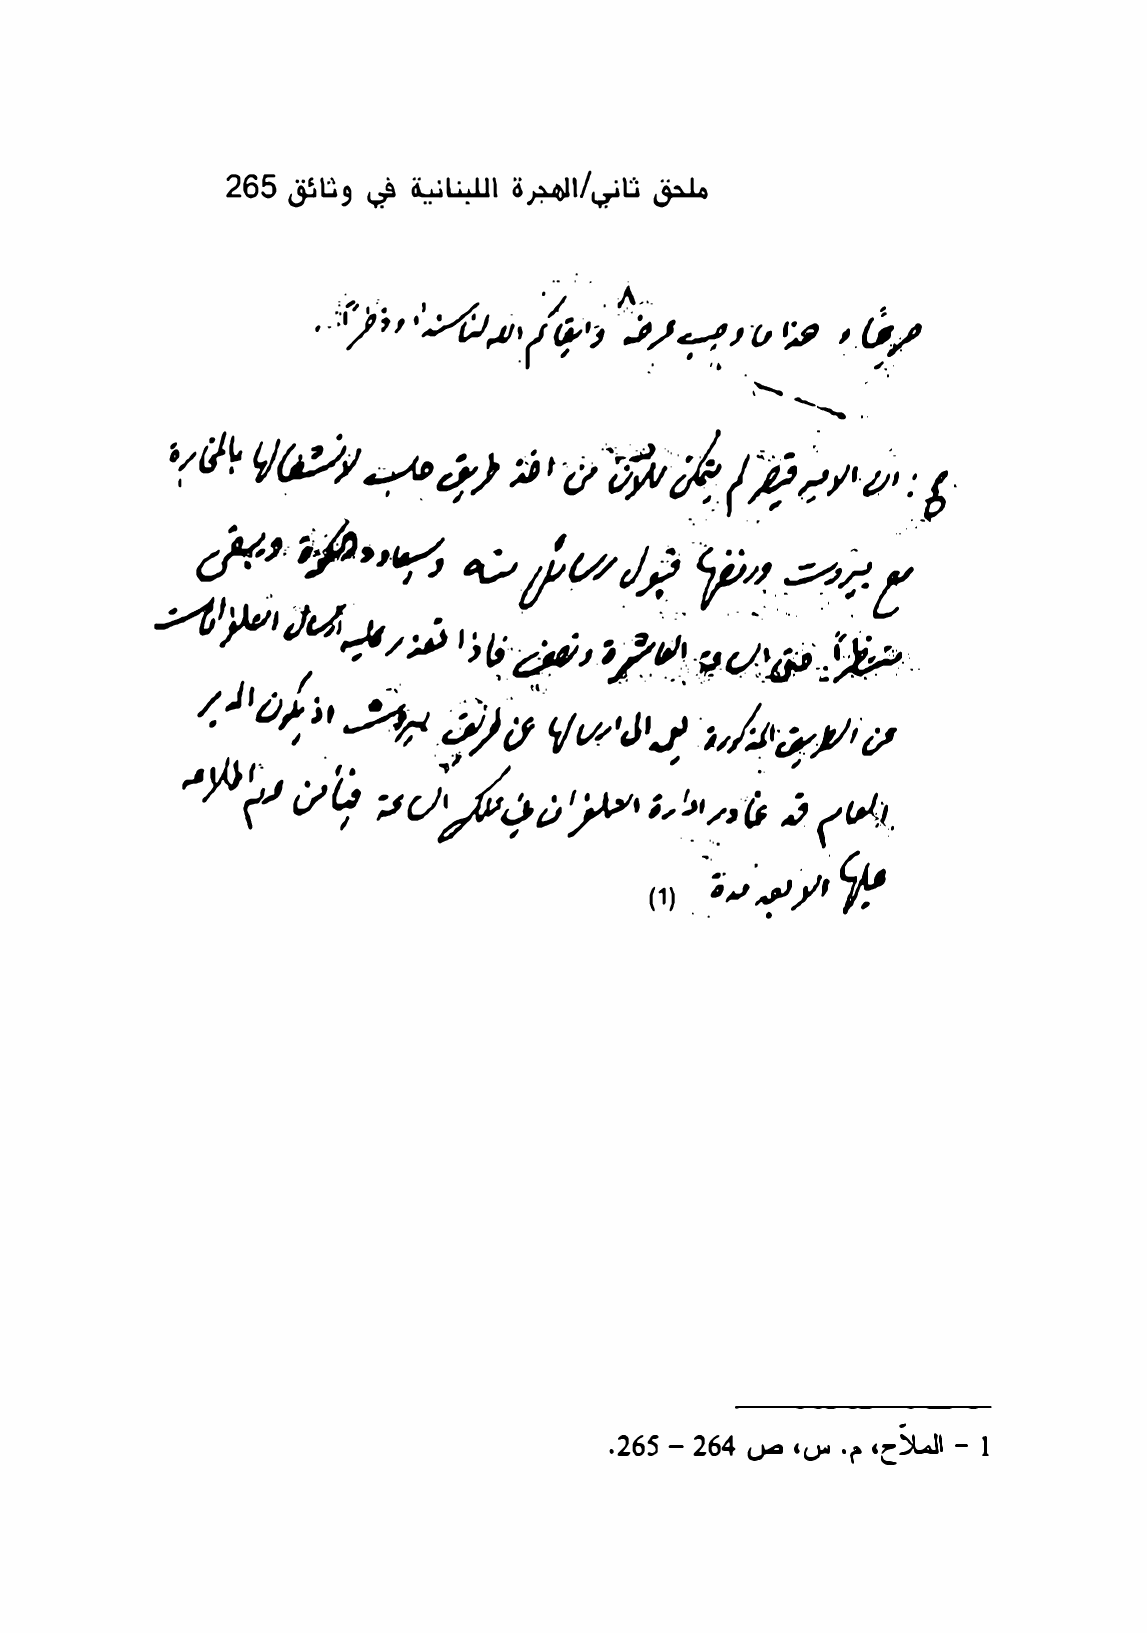 ملحق ثاني/الهجرة اللبنانية في وثائق 265
هذا ما وجب عرضه وابقاكم الله لنا سندا وذخراً.
ح: ان الامير قيصر لم يتمكن للآن من اخذ طريق حلب لانشغالها بالمخابرة
مع بيروت ورفضها قبول رسائل منه وسيعاود الكرة ويبقى
منتظراً حتى الساعة العاشرة ونصف فاذا تعذر عليه ارسال التلغرافات
عن الطريق المذكورة يعمد الى ارسالها عن طريق بيروت اذ يكون المدير
العام قد غادر ادارة التلغراف في تلك الساعة فيأمن عدم اطلاعه
عليها الا بعد مدة (1)
1 – الملاّح، م. س، ص 264 – 265.